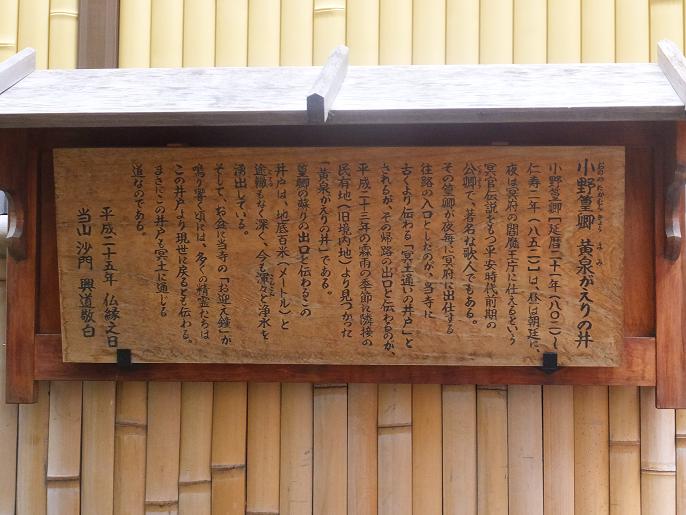 小野篁卿 黄泉がえりの井
小野篁卿[延暦二十一年(八〇二)〜
仁寿二年(八五二)]は、昼は朝廷に、
夜は冥府の閻魔王庁に仕えるという
冥官伝説をもつ平安時代前期の
公卿で、著名な歌人でもある。
その篁卿が夜毎に冥府に出仕する
往路の入口としたのが、当寺に
古くより伝わる「冥土通いの井戸」と
されるが、その帰路の出口と伝わるのが、
平成二十三年の霖雨の季節に隣接の
民有地(旧境内地)より見つかった
「黄泉がえりの井」である。
篁卿の蘇りの出口と伝わるこの
井戸は、地底百米(メートル)と
途轍もなく深く、今も滾々と浄水を
湧出している。
そして、お盆に当寺の「お迎え鐘」が
鳴り響く頃には、多くの精霊たちは
この井戸より現世に戻るとも伝わる。
まさにこの井戸も冥土に通じる
道なのである。
平成二十五年 仏縁之日
当山 沙門 興道敬白